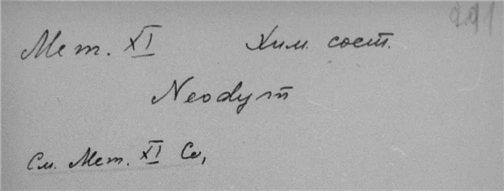 291
Мет. XI Хим. сост.
Neodym
См. Мет. XI Ce,